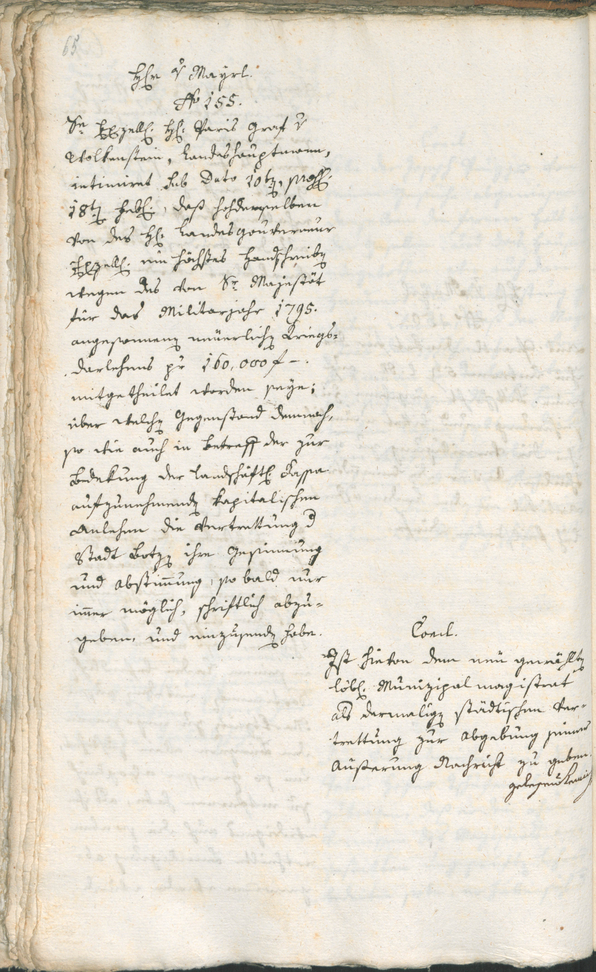 65
Hhr v Mayrl.
No 155.
Sr Exzell. H. Paris Graf v
Wolkenstein, Landeshauptmann,
intimirt sub Dato 10ten, präs.
18ten Febr., daß hochderselben
von des H. Landesgouverneur
Exzell. ein höchstes Handschreiben
wegen des von Sr Majestät
für das Militarjahr 1795.
angesonnenen neuerlichen Kriegs=
darlehens pr 160,000 f –.
mitgetheilet worden seye;
über welchen Gegenstand demnach,
so wie auch in betreff der zur
bedekung der landschäftl. Cassa
aufzunehmenden kapitalischen
Anlehen die Vertrettung d
Stadt Botzen ihre Gesinnung
und abstimmung, so bald nur
immer möglich, schriftlich abzu=
geben, und einzusenden habe.
Concl.
Ist hievon dem neu gewählten
löbl. Munizipalmagistrat
als dermaligen städtischen Ver=
trettung zur abgebung seiner
Äußerung Nachricht zu geben.